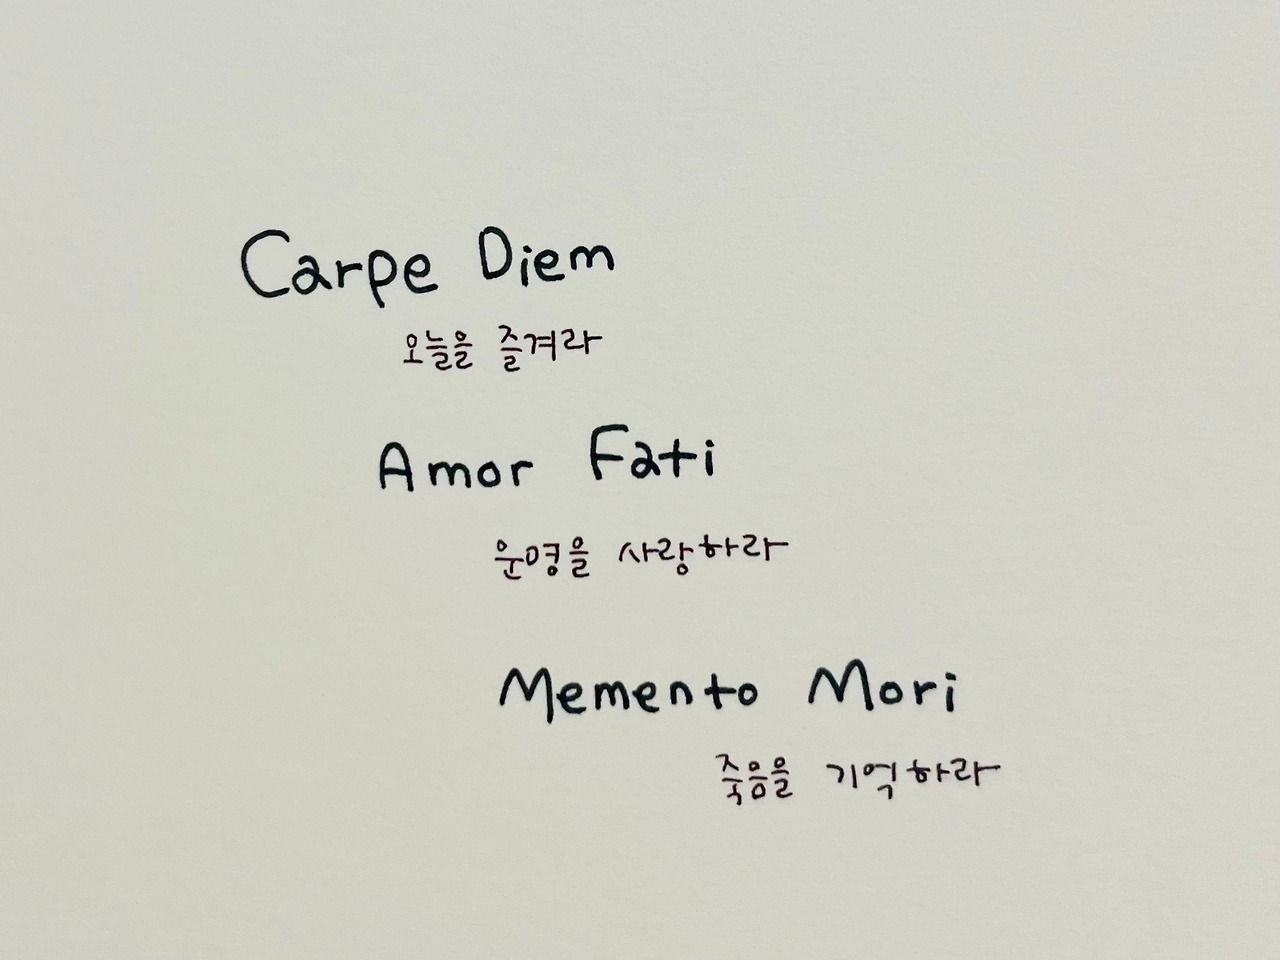 Carpe Diem
오늘을 즐겨라
Amor Fati
운명을 사랑하라
Memento Mori
죽음을 기억하라